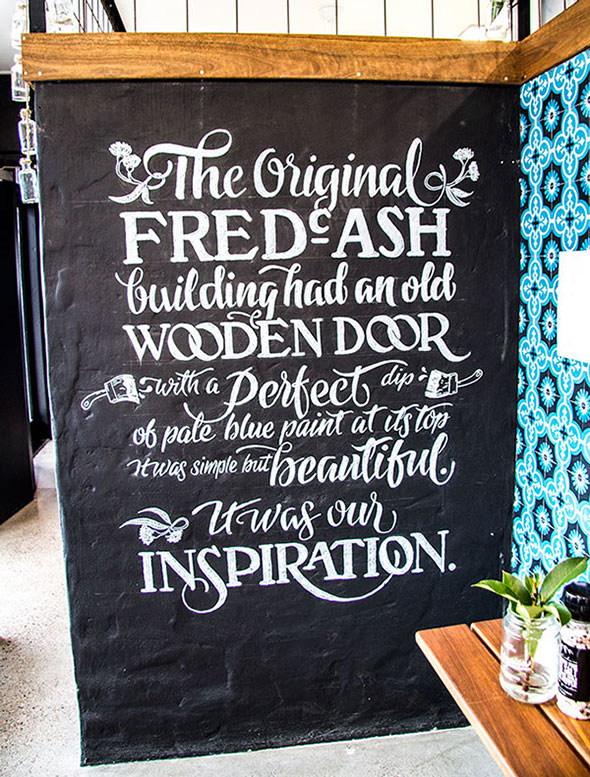 The Original
FRED c ASH
building had an old
WOODEN DOOR
with a Perfect dip
of pale blue paint at its top
it was simple but beautiful.
It was our
INSPIRATION.